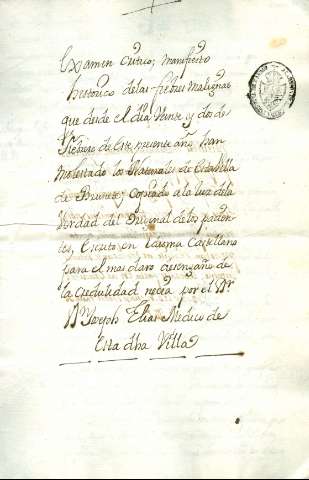 Examen critico, manifiesto
historico de las fiebres malignas
que desde el dia Veinte y dos de
Febrero de Este presente año, han
molestado los Naturales de Esta Villa
de Brunete; Copiado a la luz de la
Verdad del Original de los
Escrito en Idioma Castellano
para el mas claro desengaño de
la Credulidad necia por el Dr
Dn Joseph Elias Medico de
Esta dha Villa